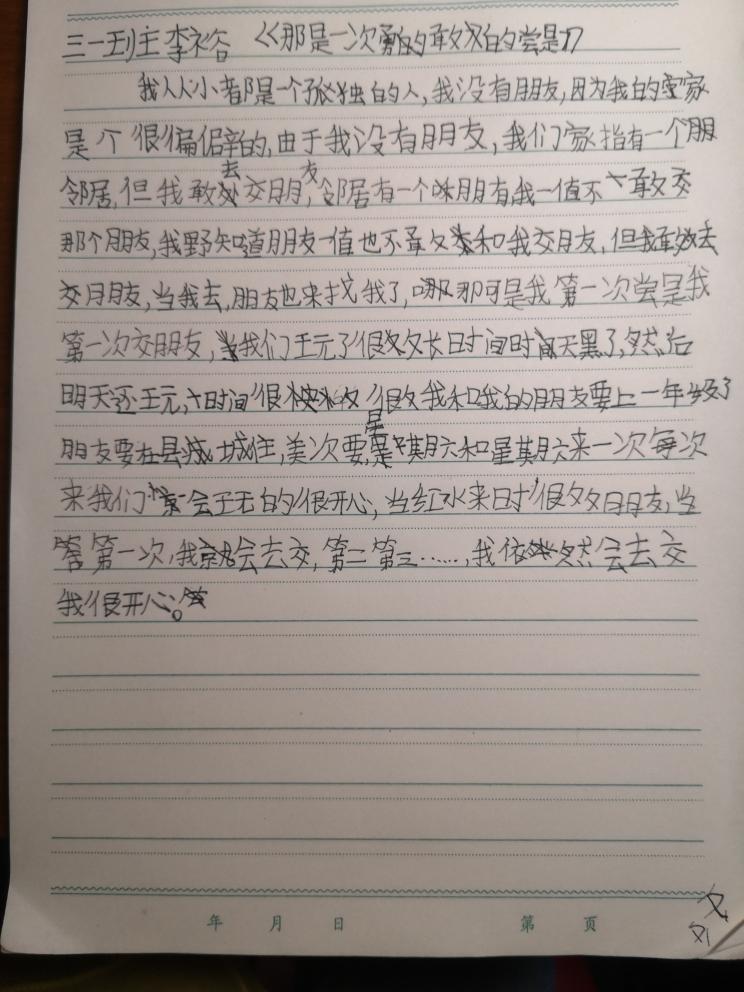 三一班 李裕 《那是一次勇的敢的尝是》
我从小都是一个孤独的人,我没有朋友,因为我的家
是个很偏僻的,由于我没有朋友,我们家指有一个朋
邻居,但我敢去交朋友,邻居有一个朋有,我一值不敢交
那个朋友,我知道朋友一值也不敢和我交月友,但我敢去
交月朋友,当我去,朋友也来找我了,哪那可是我第一次尝是我
第一次交朋友,我们王元了很久长日时间时间天黑了,然后
明天还王元,时间很快很久我和我的朋友要上一年级了
朋友要在县城城住,美次要是星期六和星其月六来一次每次
来我们家会王元的很开心,当红水来日时很多月朋友,当
第一次,我就会去交,第二第三……,我依然会去交
我很开心。
年 月 日 第 页